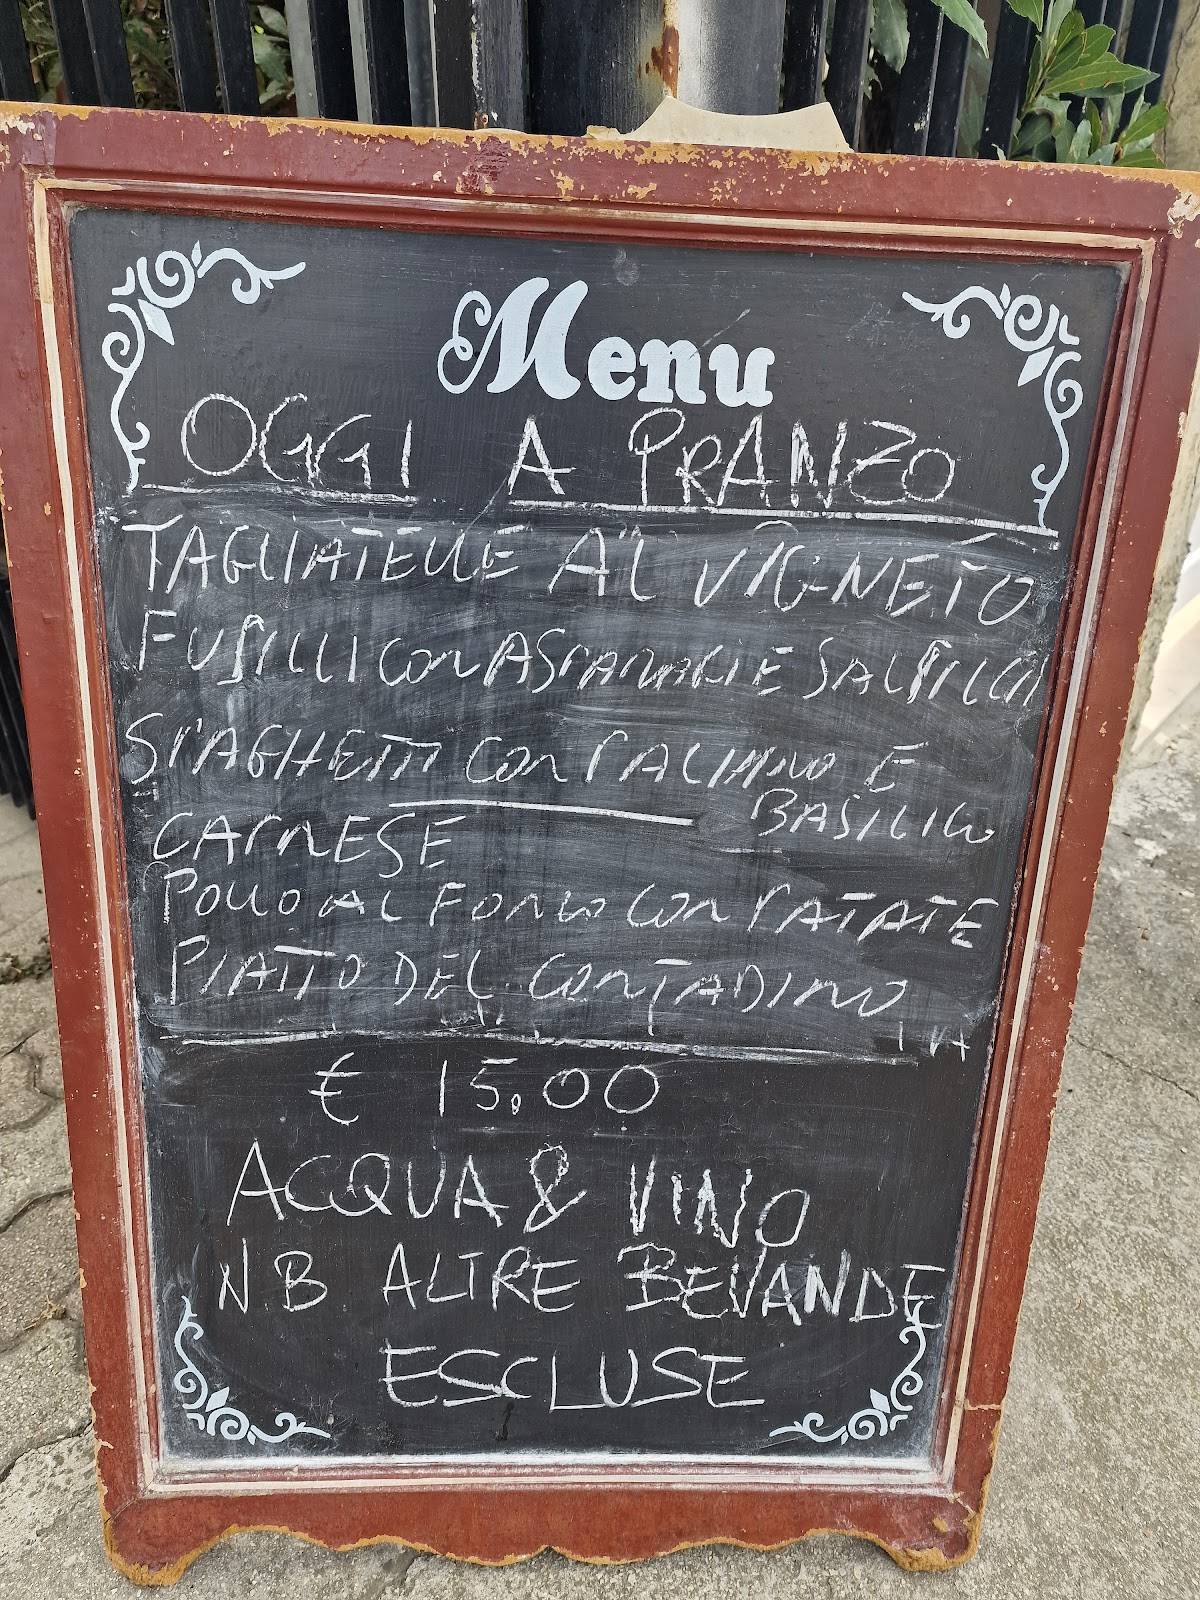 Menu
OGGI A PRANZO
TAGLIATELLE AL VIGNETO
FUSILLI CON ASPARAGI E SALSICCIA
SPAGHETTI CON PACHINO E
BASILICO
CARNESE
POLLO AL FORNO CON PATATE
PIATTO DEL CONTADINO
€ 15,00
ACQUA & VINO
N.B ALTRE BEVANDE
ESCLUSE